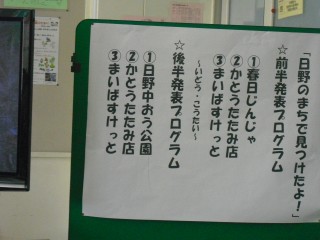 「日野のまちで見つけたよ！」
☆前半発表プログラム
①春日じんじゃ
②かとうたたみ店
③まいばすけっと
～いどう・こうたい～
☆後半発表プログラム
①日野中おう公園
②かとうたたみ店
③まいばすけっと